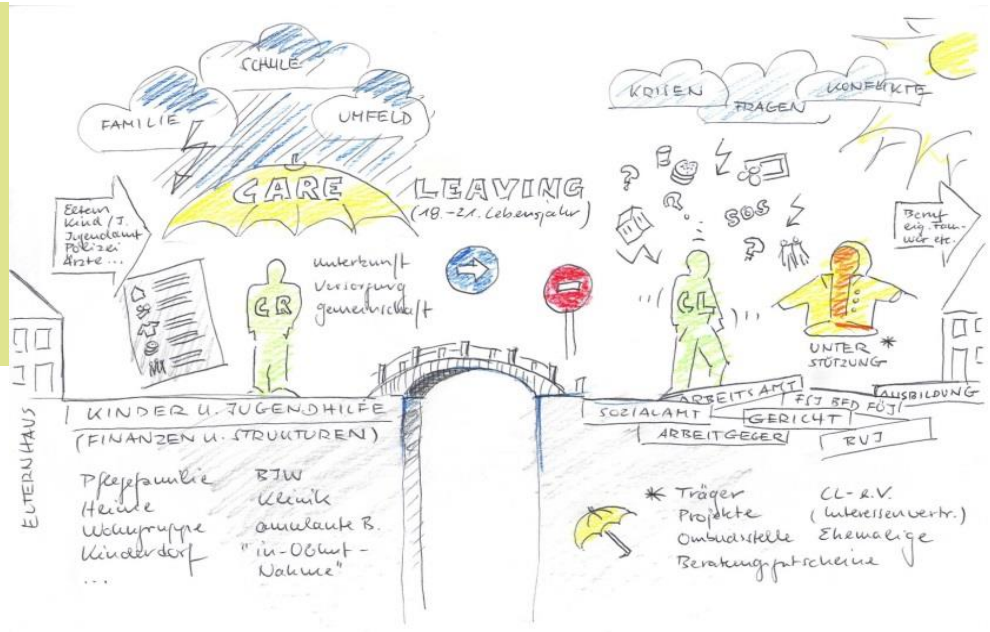 SCHULE
FAMILIE
UMFELD
KRISEN
FRAGEN
KONFLIKTE
CARE LEAVING
(18.-21. Lebensjahr)
Eltern
Kind / J.
Jugendamt
Polizei
Ärzte ...
Unterkunft
Versorgung
Gemeinschaft
CR
?
?
SOS
?
CL
Beruf
eig. Fam-
etc.
UNTER *
STÜTZUNG
ELTERNHAUS
KINDER U. JUGENDHILFE
(FINANZEN U. STRUKTUREN)
Pflegefamilie
Heime
Wohngruppe
Kinderdorf
...
BJW
Klinik
ambulante B.
"in-Obhut-
Nahme"
ARBEITSAMT
FSJ BFD FÖJ
AUSBILDUNG
SOZIALAMT
GERICHT
ARBEITGEGER
BVJ
* Träger
Projekte
Ombudsstelle
Beratungsgutscheine
CL-e.V.
(Interessenvertr.)
Ehemalige